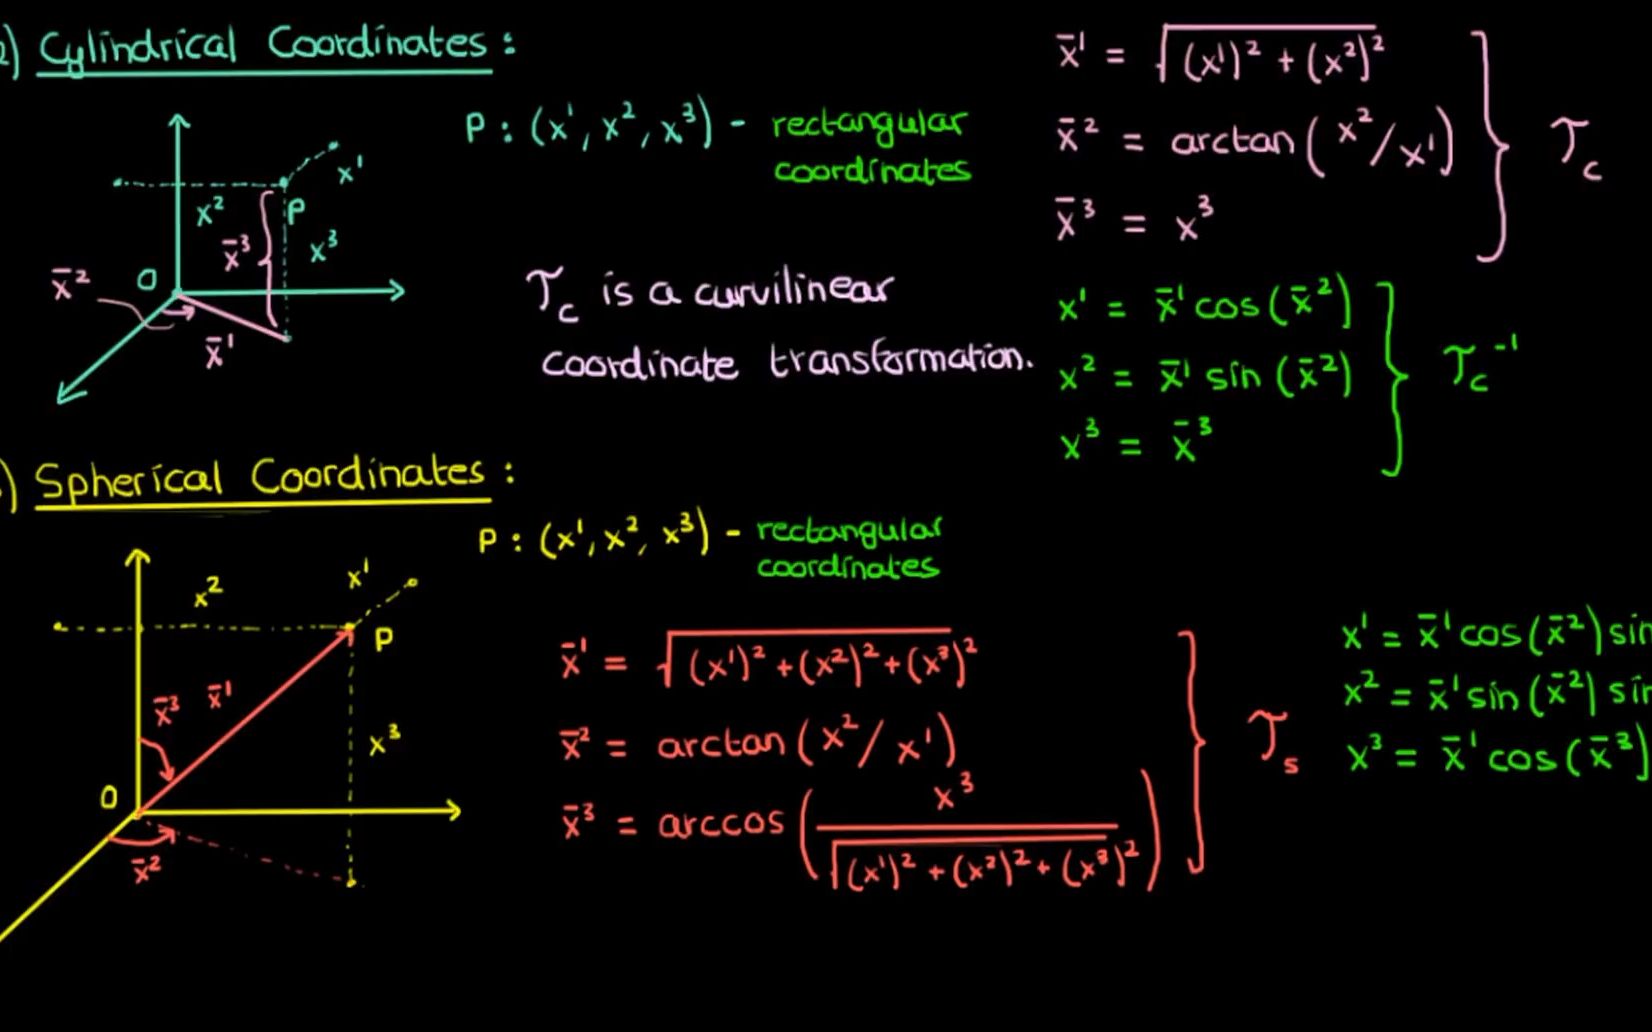 2) Cylindrical Coordinates :
P : (x¹, x², x³) - rectangular
coordinates
x¹
x²
P
x̄³
x³
x̄²
O
x̄¹
T_c is a curvilinear
coordinate transformation.
x̄¹ = √((x¹)² + (x²)²)
x̄² = arctan(x²/x¹)
x̄³ = x³
T_c
x¹ = x̄¹ cos(x̄²)
x² = x̄¹ sin(x̄²)
x³ = x̄³
T_c⁻¹
) Spherical Coordinates :
P : (x¹, x², x³) - rectangular
coordinates
x²
x¹
P
x̄³
x̄¹
x³
O
x̄²
x̄¹ = √((x¹)² + (x²)² + (x³)²)
x̄² = arctan(x²/x¹)
x̄³ = arccos(x³/√((x¹)² + (x²)² + (x³)²))
T_s
x¹ = x̄¹ cos(x̄²) sin
x² = x̄¹ sin(x̄²) sin
x³ = x̄¹ cos(x̄³)